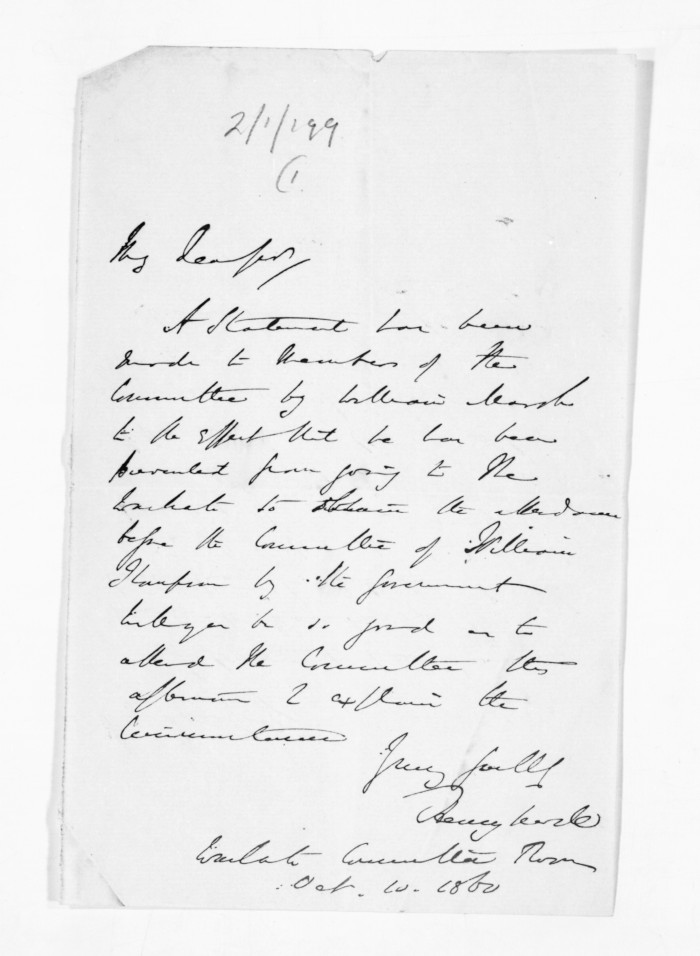 2/1/199
(1.
My Dear Sir,
A Statement has been
made to Members of the
Committee by William Marsh
to the effect that he has been
prevented from going to the
Waikato to obtain the attendance
before the Committee of William
Thompson by the Government
Will you be so good as to
attend the Committee this
afternoon & explain the
Circumstances
Yours faithfully
Henry
Waikato Committee Room
Oct. 10. 1860